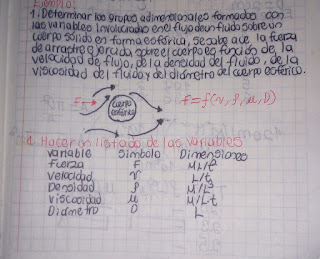 Ejemplo:
1. Determinar los grupos adimensionales formados con
las variables involucradas en el flujo de un fluido sobre un
cuerpo sólido en forma esférica, se sabe que la fuerza
de arrastre ejercida sobre el cuerpo es función de la
velocidad de flujo, de la densidad del fluido, de la
viscosidad del fluido y del diámetro del cuerpo esférico.
F
cuerpo
esférico
F=f(v, ρ, μ, D)
1. Hacer un listado de las Variables
Variable Símbolo Dimensiones
Fuerza F ML/t²
velocidad v L/t
Densidad ρ M/L³
viscosidad μ M/Lt
Diámetro D L